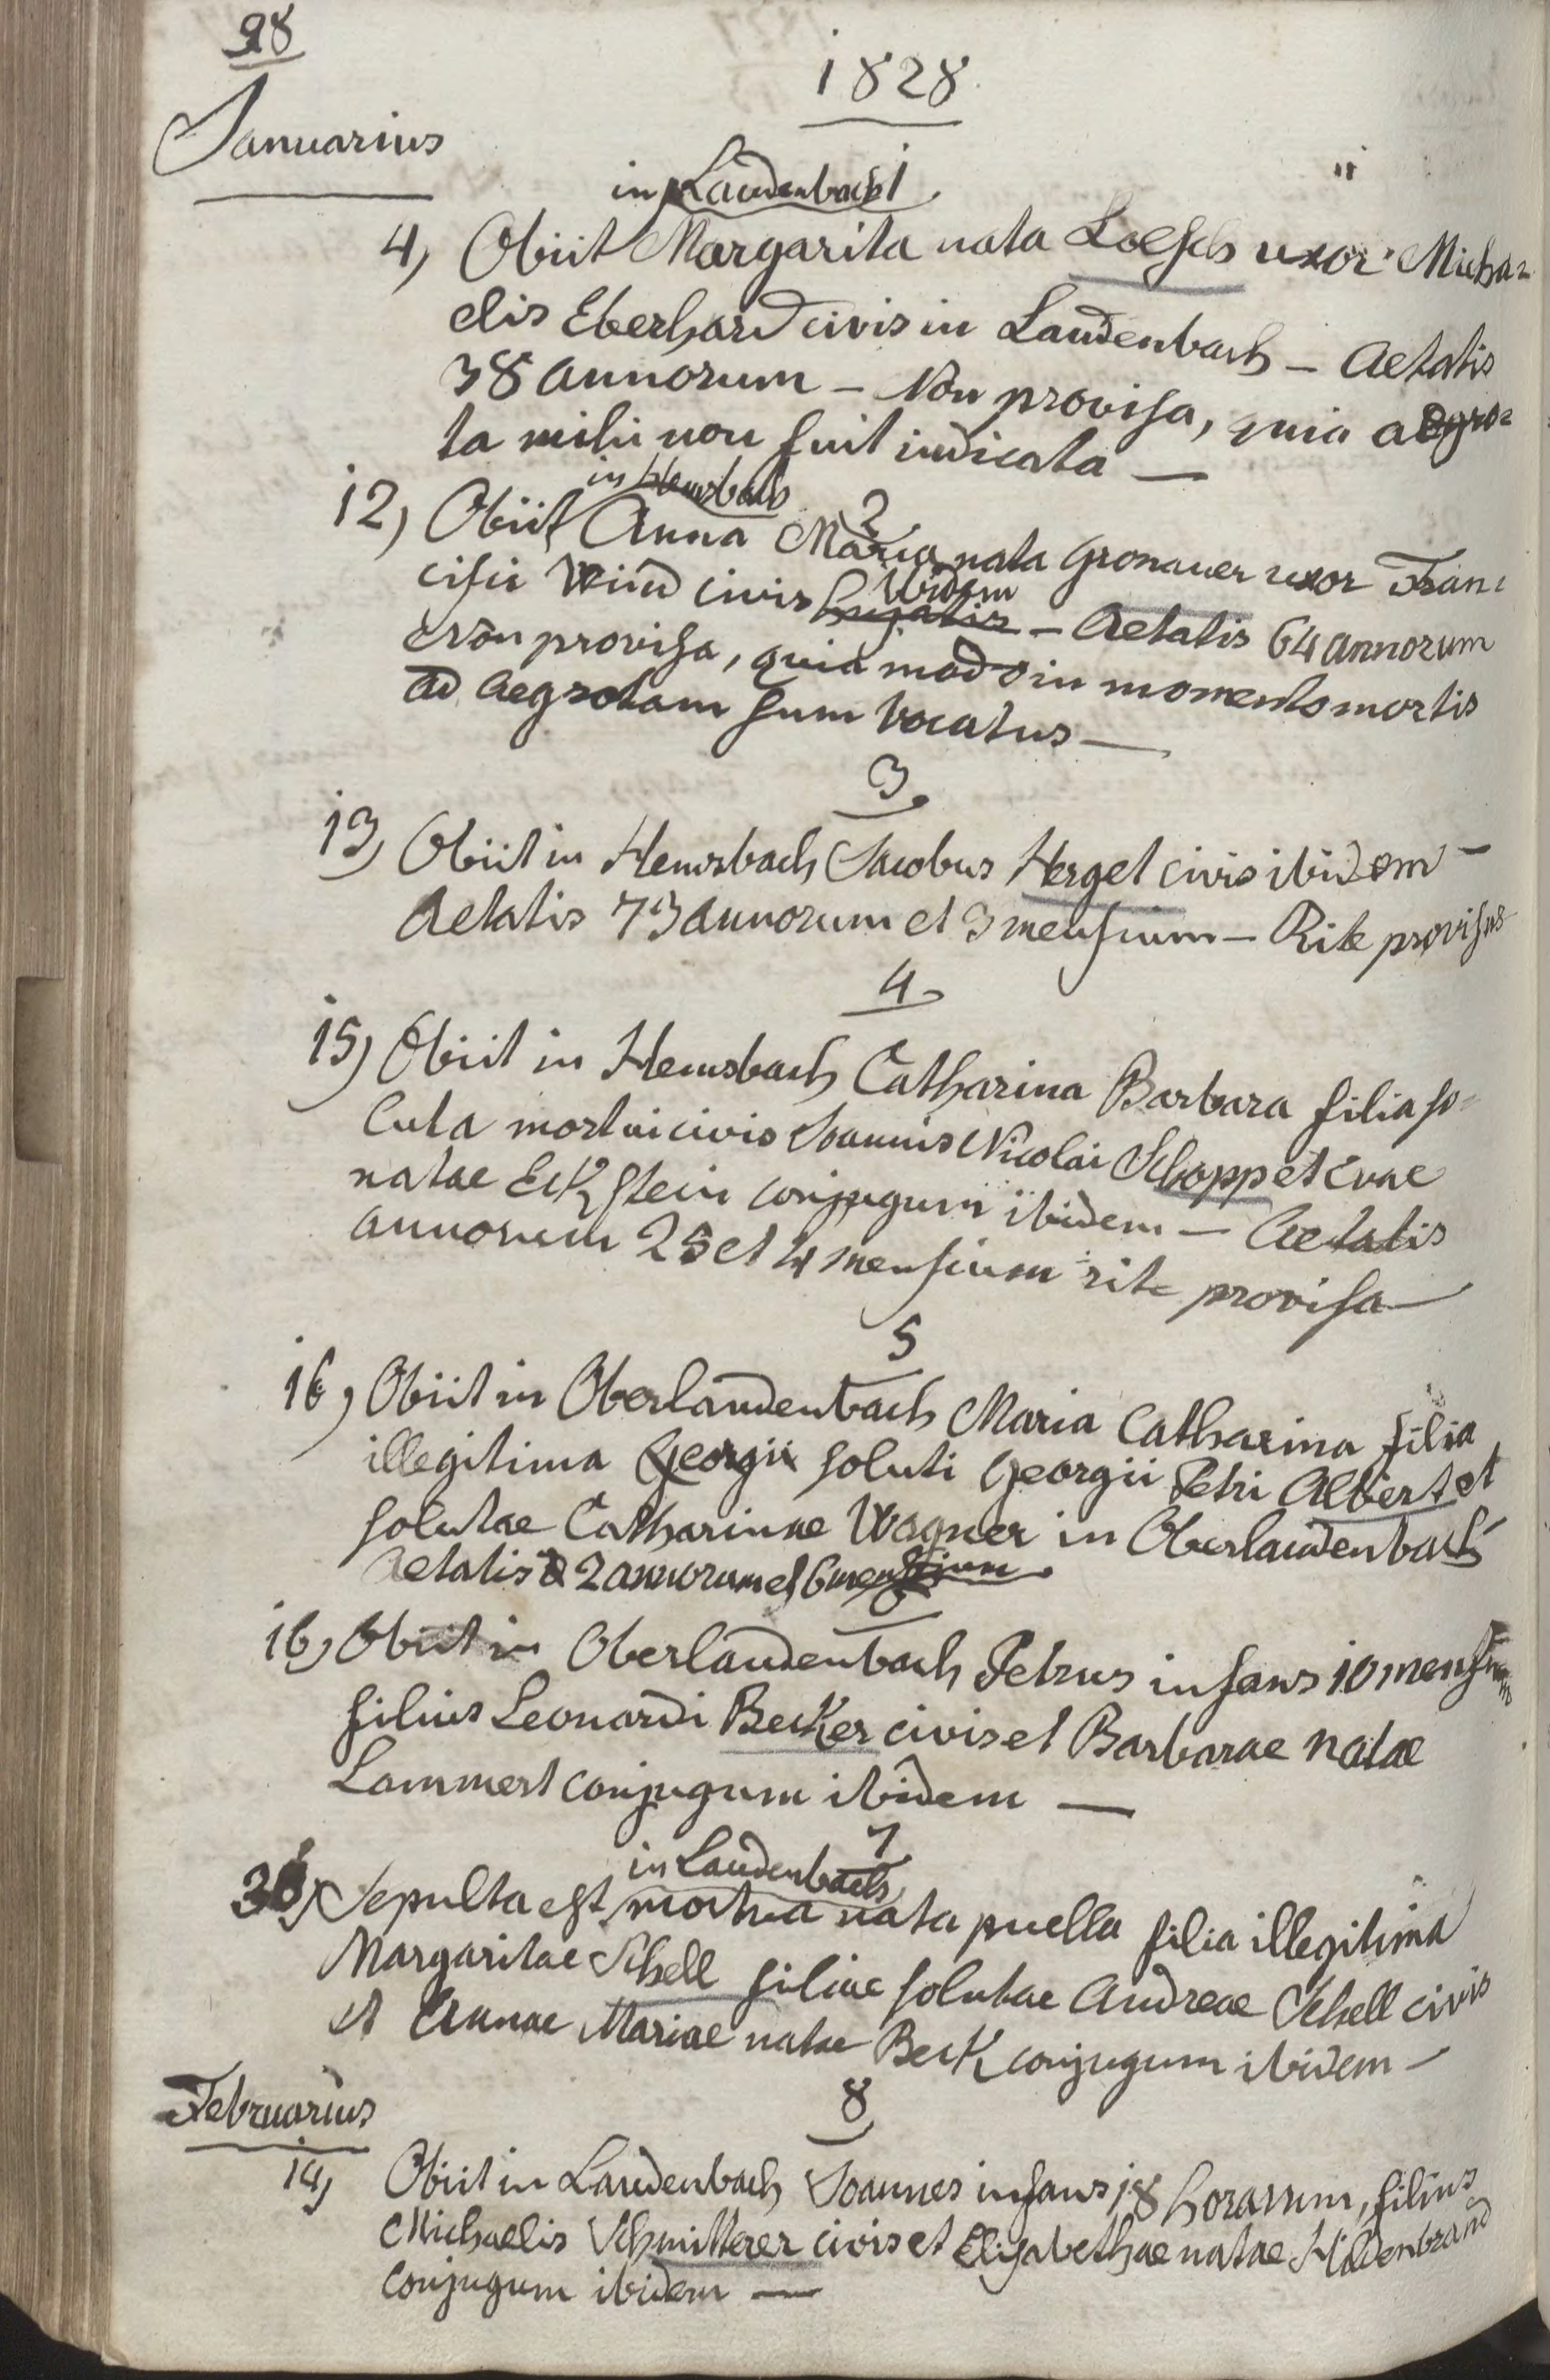 98
1828
Januarius
in Laudenbach 1
4) Obiit Margarita nata Loesch uxor Micha=
elis Eberhard civis in Laudenbach – Aetatis
38 annorum – Non provisa, quia aegro=
ta mihi non fuit indicata —
in Hemsbach
2
12) Obiit Anna Maria nata Gronauer uxor Fran=
ibidem
cisci Wind civis hujatis – Aetatis 64 annorum
Non provisa, quia modo in momento mortis
ad aegrotam sum vocatus —
3
13) Obiit in Hemsbach Jacobus Herget civis ibidem –
Aetatis 73 annorum et 3 mensium – Rite provisus
4
15) Obiit in Hemsbach Catharina Barbara filia so=
luta mortui civis Joannis Nicolai Schopp et Evae
natae Eckstein conjugum ibidem – Aetatis
annorum 25 et 4 mensium rite provisa —
5
16) Obiit in Oberlaudenbach Maria Catharina filia
illegitima Georgii soluti Georgii Petri Albert et
solutae Catharinae Wagner in Oberlaudenbach
Aetatis 2 annorum et 6 mensium
6
16) Obiit in Oberlaudenbach Petrus infans 10 mensium
filius Leonardi Becker civis et Barbarae natae
Lammert conjugum ibidem —
7
in Laudenbach
Sepulta est mortua nata puella filia illegitima
Margaritae Schell filiae solutae Andreae Schell civis
et Annae Mariae natae Beck conjugum ibidem –
Februarius
8
14) Obiit in Laudenbach Joannes infans 18 horarum, filius
Michaelis Schmitterer civis et Elisabethae natae Hildenbrand
conjugum ibidem —